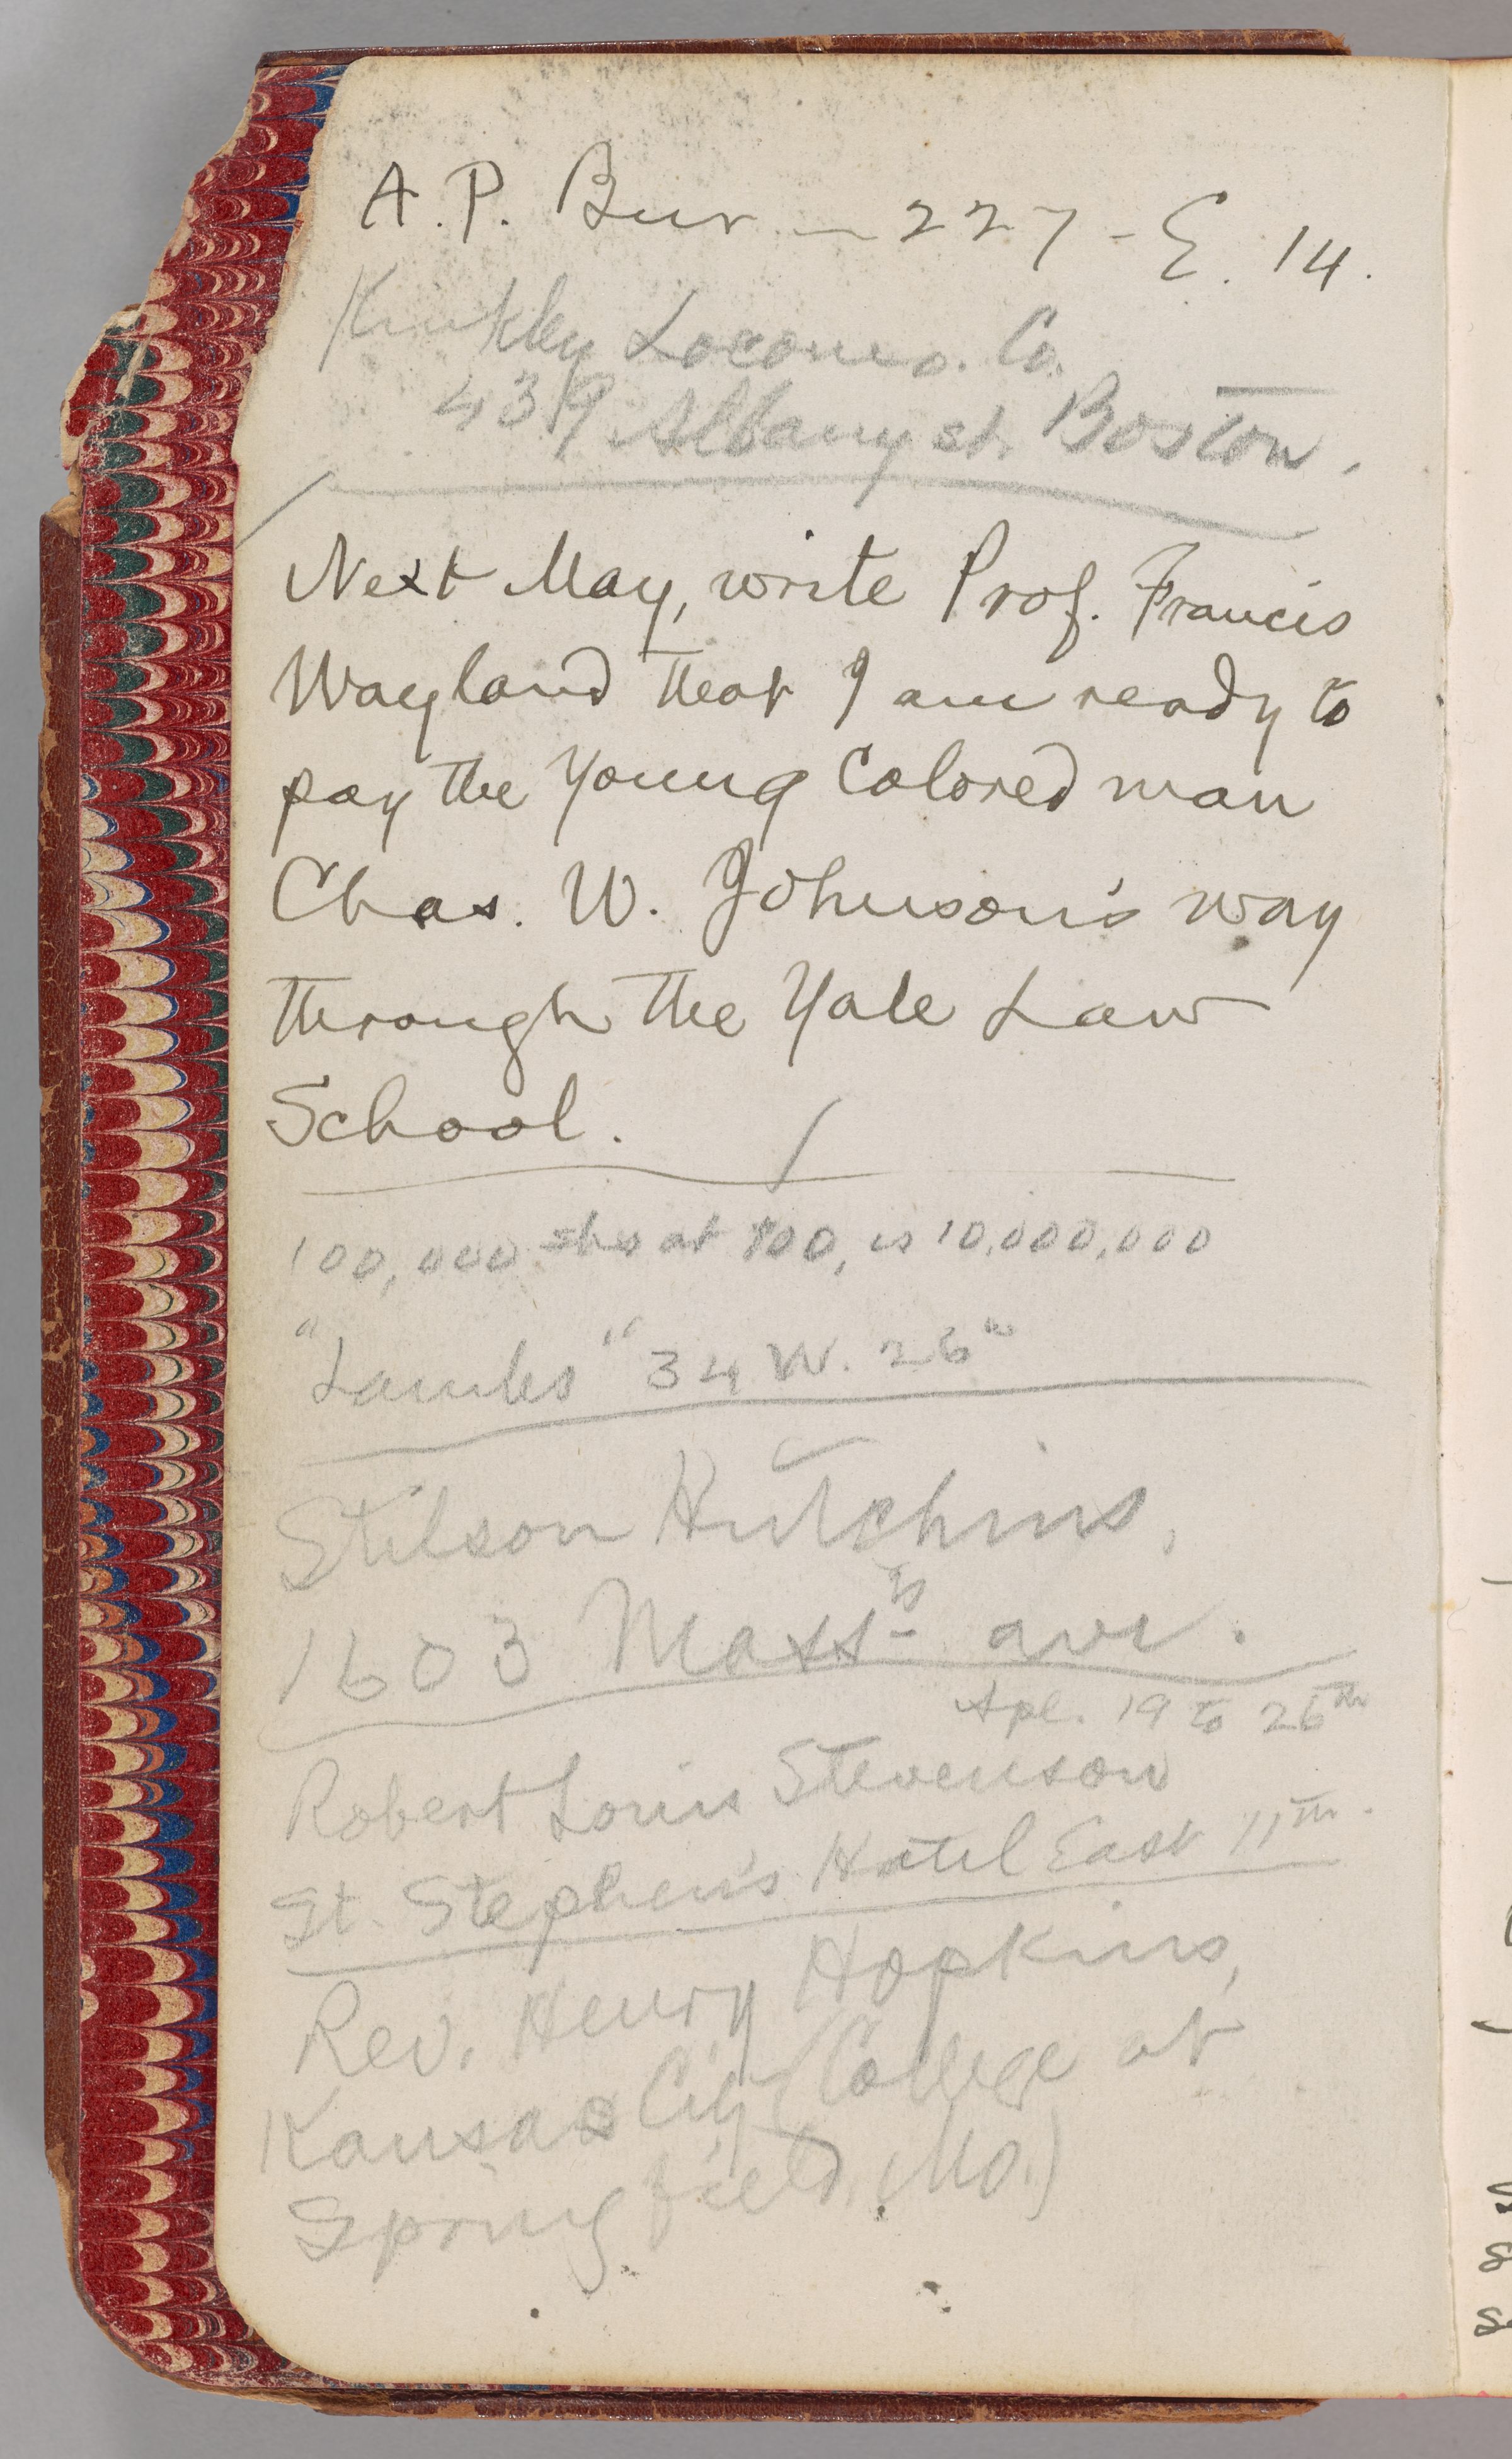 A. P. Bur — 227 - E. 14.
Hinkley Locomo. Co.
439 Albany st. Boston.
Next May, write Prof. Francis
Wayland that I am ready to
pay the young colored man
Chas. W. Johnson's way
through the Yale Law
School.
100,000 shs at 100, is 10,000,000
"Lambs" 34 W. 26th
Stilson Hutchins,
1603 Masstts ave.
Apl. 19 to 26th
Robert Louis Stevenson
St. Stephen's Hotel East 11th.
Rev. Henry Hopkins,
Kansas City (College at
Springfield, Mo.)